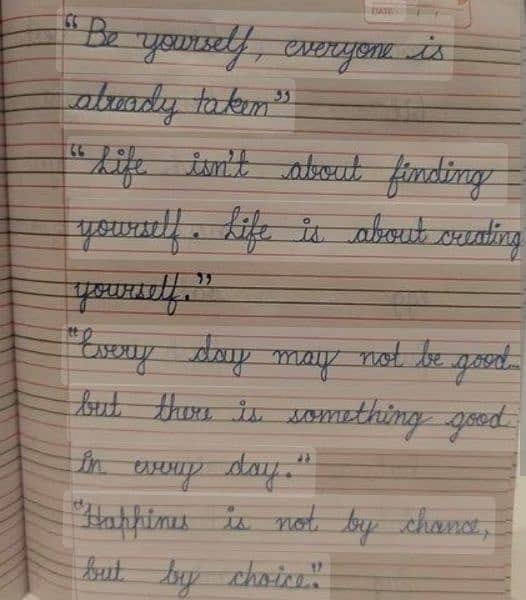 "Be yourself, everyone is
already taken"
"Life isn't about finding
yourself. Life is about creating
yourself."
"Every day may not be good..
but there is something good
in every day."
"Happines is not by chance,
but by choice."